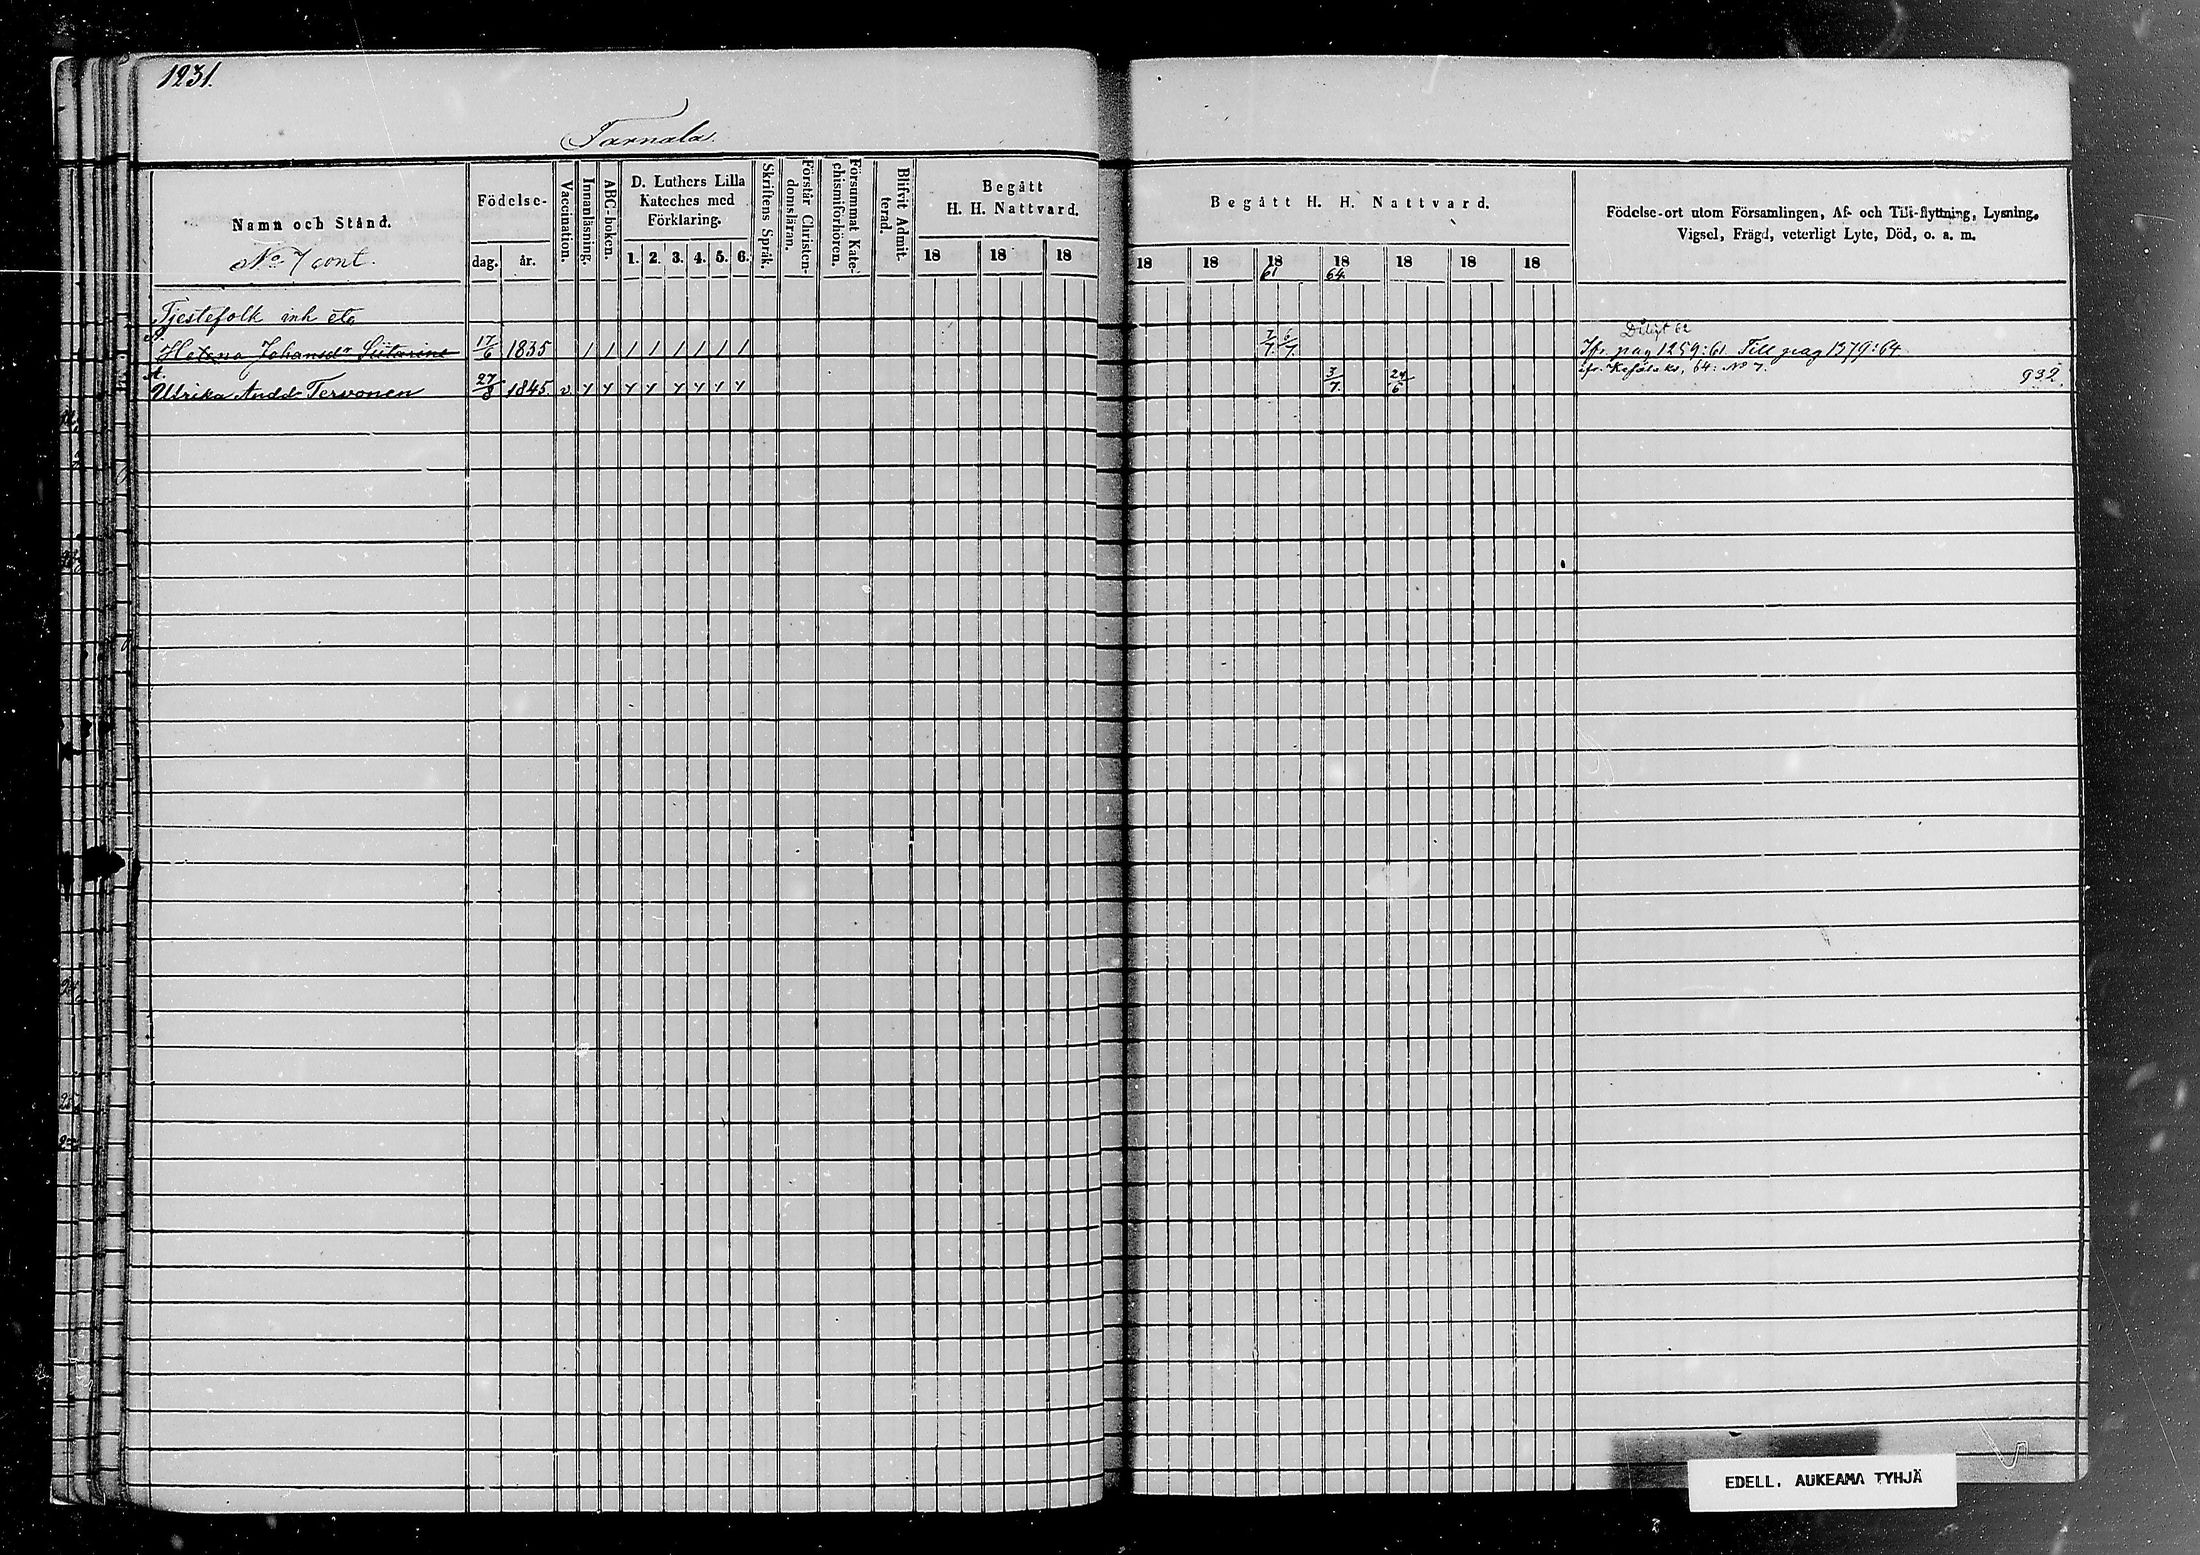 1231.
Tarnala
Namn och Stånd.
No 7 cont.
Födelse-
dag. år.
Vaccination.
Innanläsning.
ABC-boken.
D. Luthers Lilla
Kateches med
Förklaring.
1. 2. 3. 4. 5. 6.
Skriftens Språk.
Förstår Christen-
domsläran.
Försummat Kate-
chismiförhören.
Blifvit Admit-
terad.
Begått
H. H. Nattvard.
18 18 18
Begått H. H. Nattvard.
18 18 18 61 18 64 18 18 18
Födelse-ort utom Församlingen, Af- och Till-flyttning, Lysning,
Vigsel, Frägd, veterligt Lyte, Död, o. a. m.
Tjestefolk inh etc
Helena Johansdr 17/6 1835 1 1 1 1 1 1 1 1 7/7 Ifr. pag 1259:61 Till pag 1379:64
Ulrika Andd Tervonen 27/8 1845. v. 3/7 24/6 64: No 7. 932.
EDELL. AUKEAMA TYHJÄ